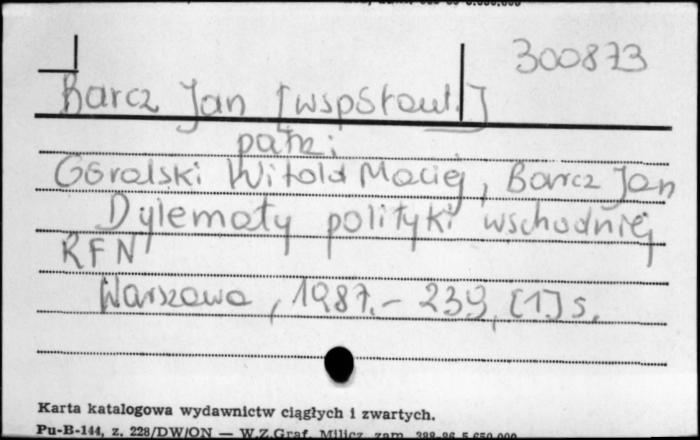 300873
Barcz Jan [współaut.]
patrz:
Góralski Witold Maciej, Barcz Jan
Dylematy polityki wschodniej
RFN
Warszawa, 1987.- 239, [1] s.
Karta katalogowa wydawnictw ciągłych i zwartych.
Pu-B-144, z. 228/DW/ON — W.Z.Graf. Milicz, zam.